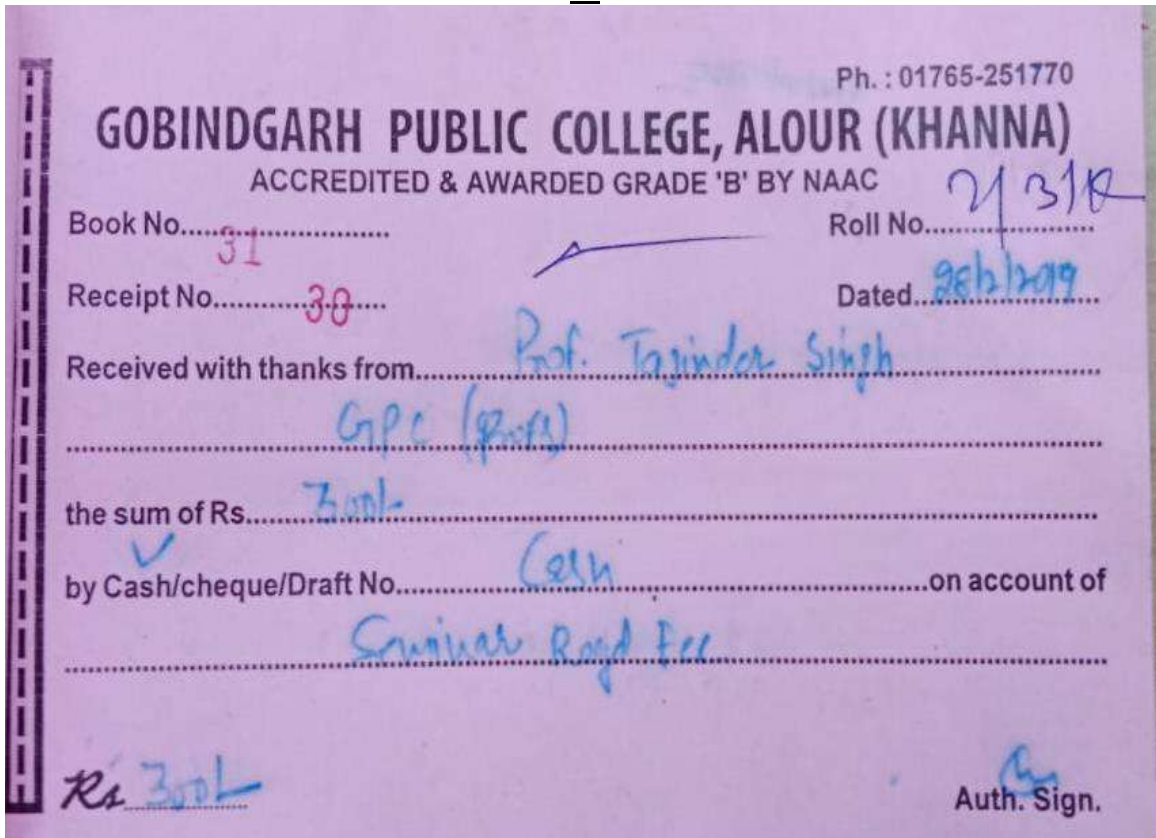 Ph. : 01765-251770
GOBINDGARH PUBLIC COLLEGE, ALOUR (KHANNA)
ACCREDITED & AWARDED GRADE 'B' BY NAAC
Book No. 31 Roll No.
Receipt No. 30 Dated 28/2/2019
Received with thanks from Prof. Tajinder Singh
GPC
the sum of Rs. 300/-
by Cash/cheque/Draft No. Cash on account of
Seminar Regd Fee
Rs 300/- Auth. Sign.